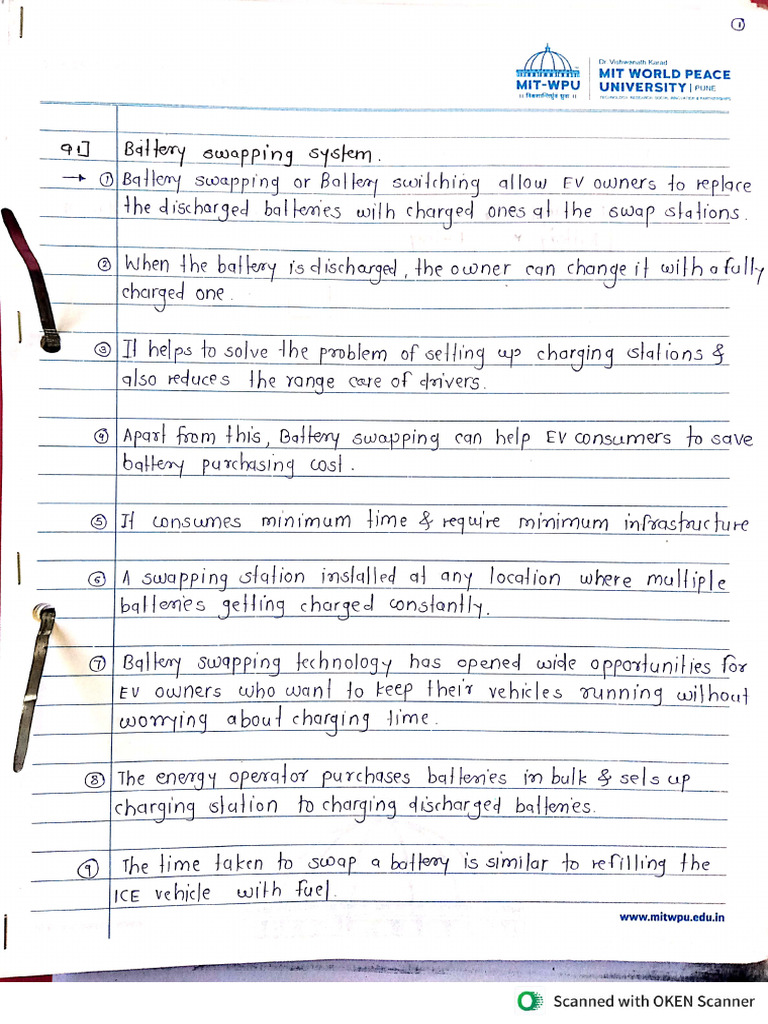 ①
Dr. Vishwanath Karad
MIT WORLD PEACE
UNIVERSITY | PUNE
TECHNOLOGY, RESEARCH, SOCIAL INNOVATION & PARTNERSHIPS
MIT-WPU
॥ विश्वशान्तिर्ध्रुवं ध्रुवा ॥
Q1] Battery swapping system.
→ ① Battery swapping or Battery switching allow EV owners to replace
the discharged batteries with charged ones at the swap stations.
② When the battery is discharged, the owner can change it with a fully
charged one.
③ It helps to solve the problem of setting up charging stations &
also reduces the range care of drivers.
④ Apart from this, Battery swapping can help EV consumers to save
battery purchasing cost.
⑤ It consumes minimum time & require minimum infrastructure
⑥ A swapping station installed at any location where multiple
batteries getting charged constantly.
⑦ Battery swapping technology has opened wide opportunities for
EV owners who want to keep their vehicles running without
worrying about charging time.
⑧ The energy operator purchases batteries in bulk & sets up
charging station to charging discharged batteries.
⑨ The time taken to swap a battery is similar to refilling the
ICE vehicle with fuel.
www.mitwpu.edu.in
Scanned with OKEN Scanner